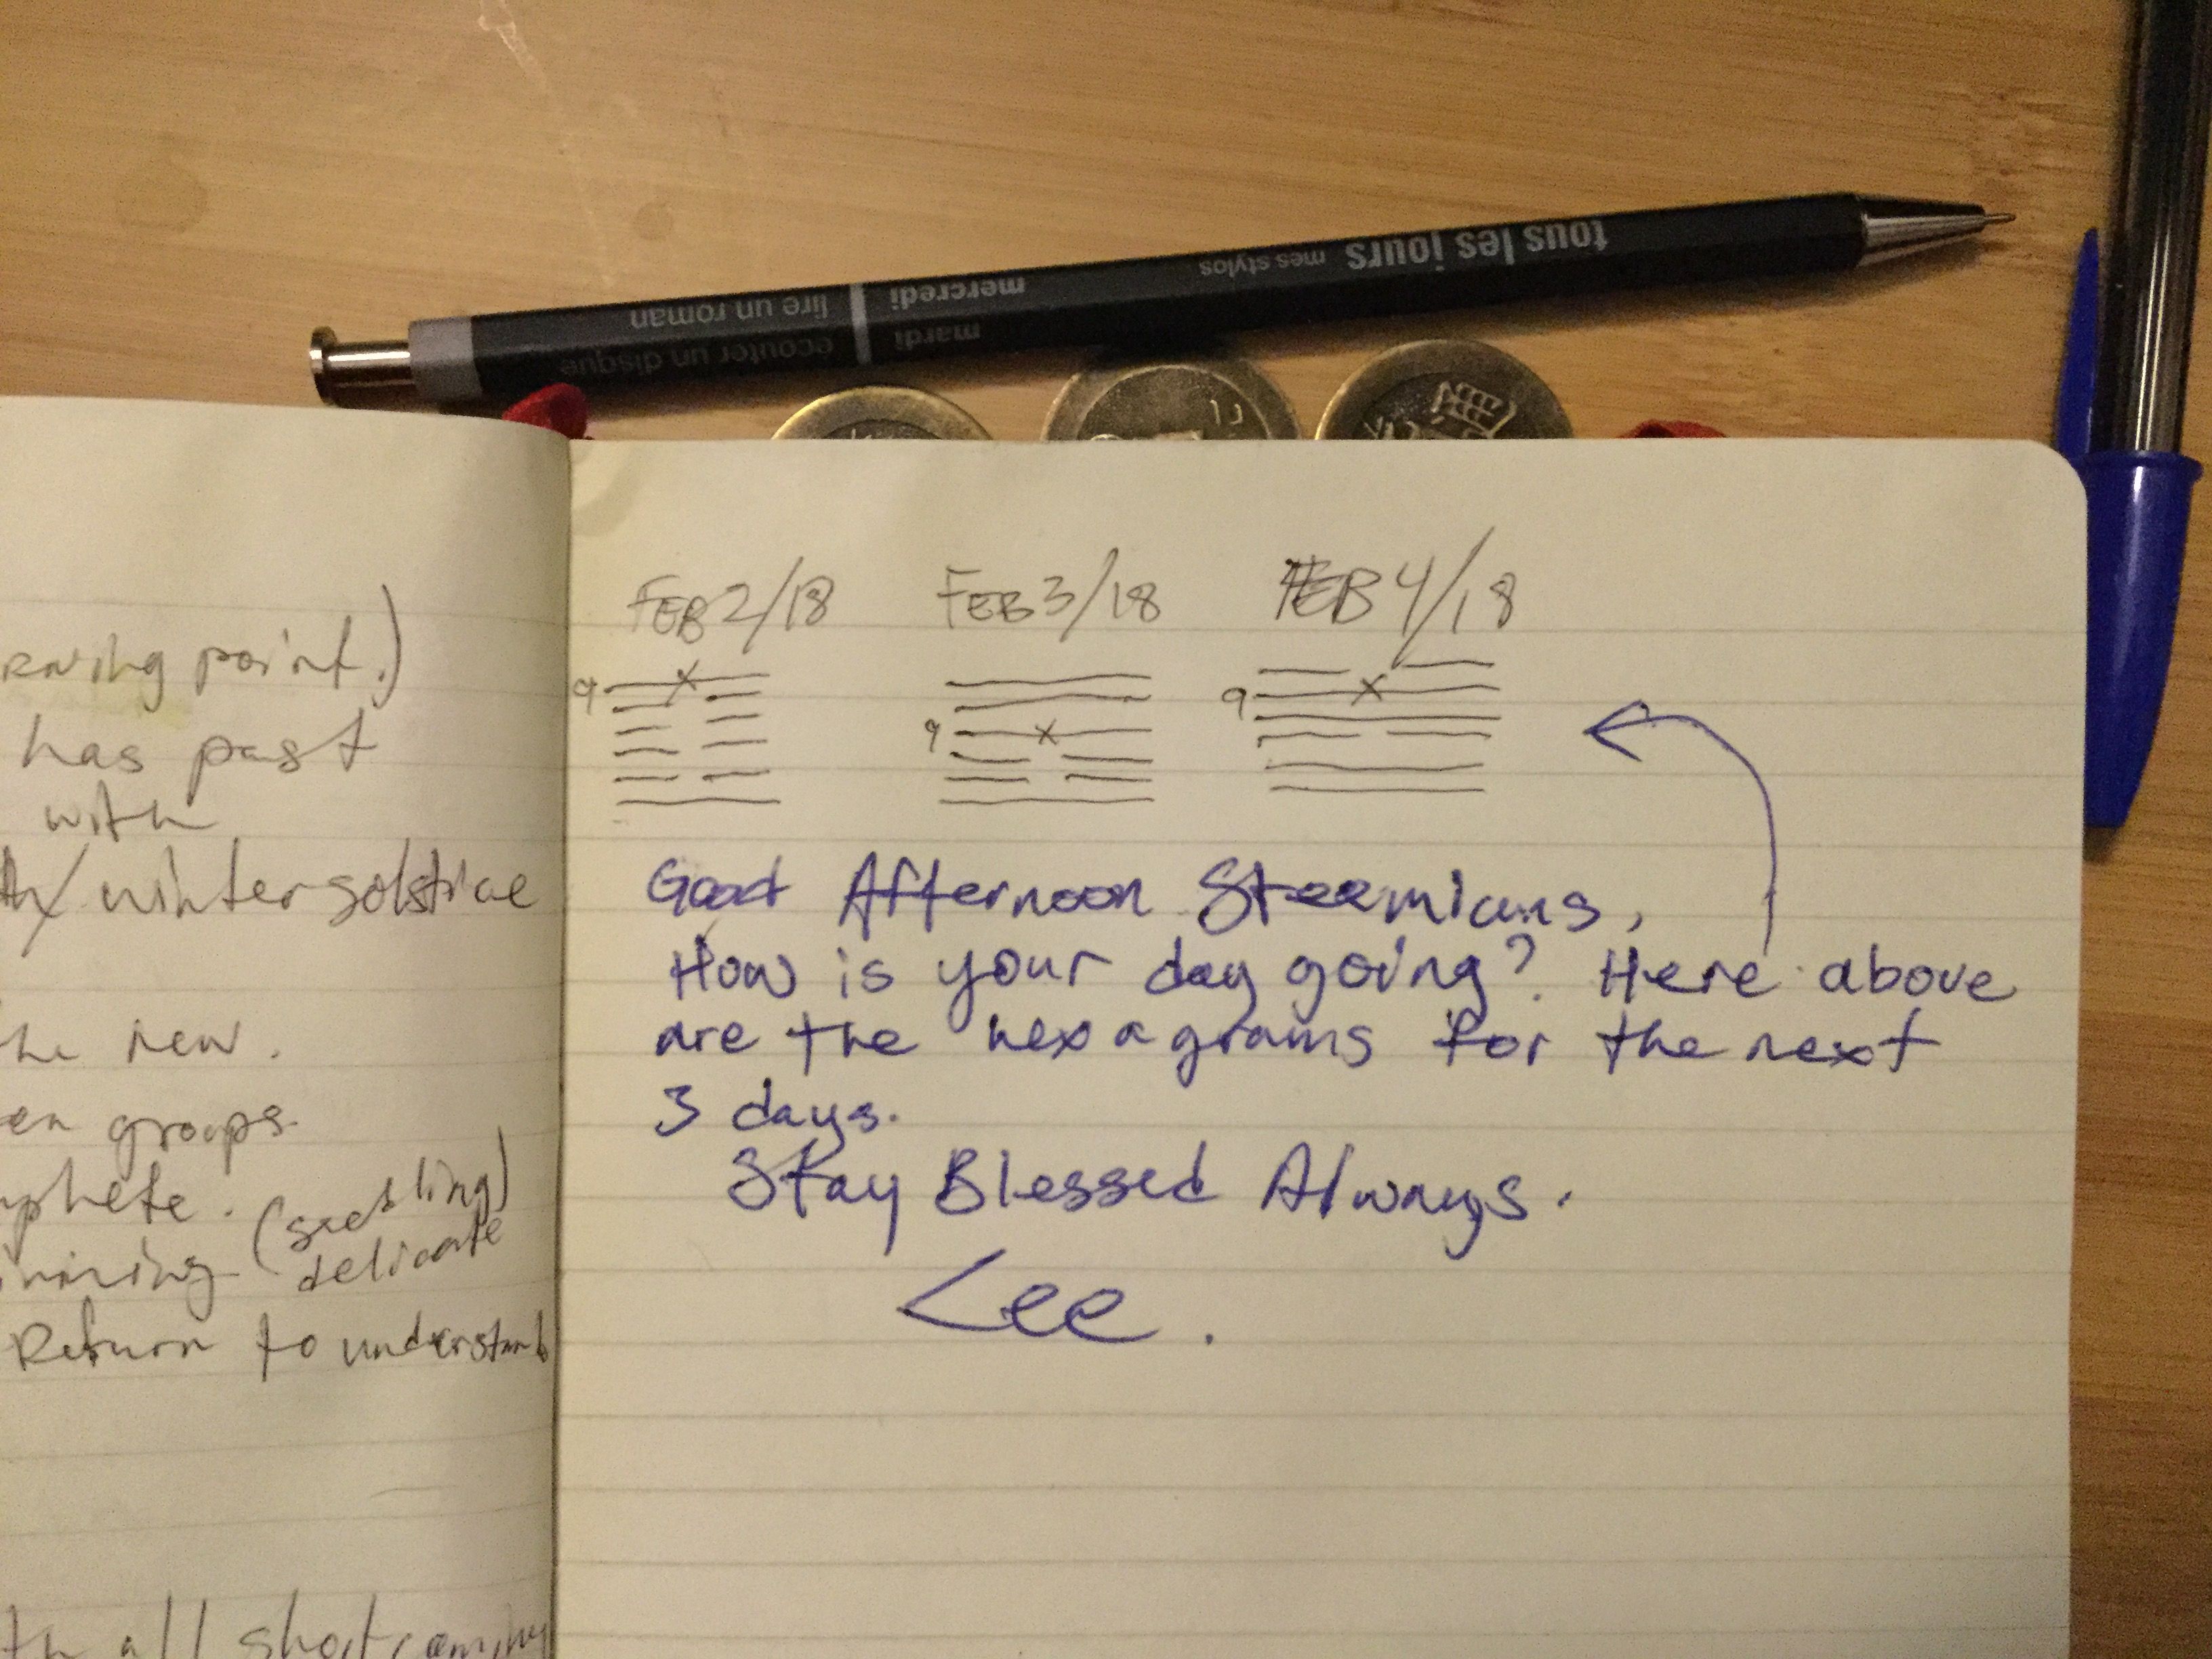 tous les jours mes stylos
mercredi lire un roman
mardi écouter un disque
point.)
has past
with
winter solstice
new.
groups.
(seedling)
delicate
Return to understand
all
FEB 2/18 FEB 3/18 FEB 4/18
9 9 9
Good Afternoon Steemians,
How is your day going? Here above
are the hexagrams for the next
3 days.
Stay Blessed Always.
Lee.